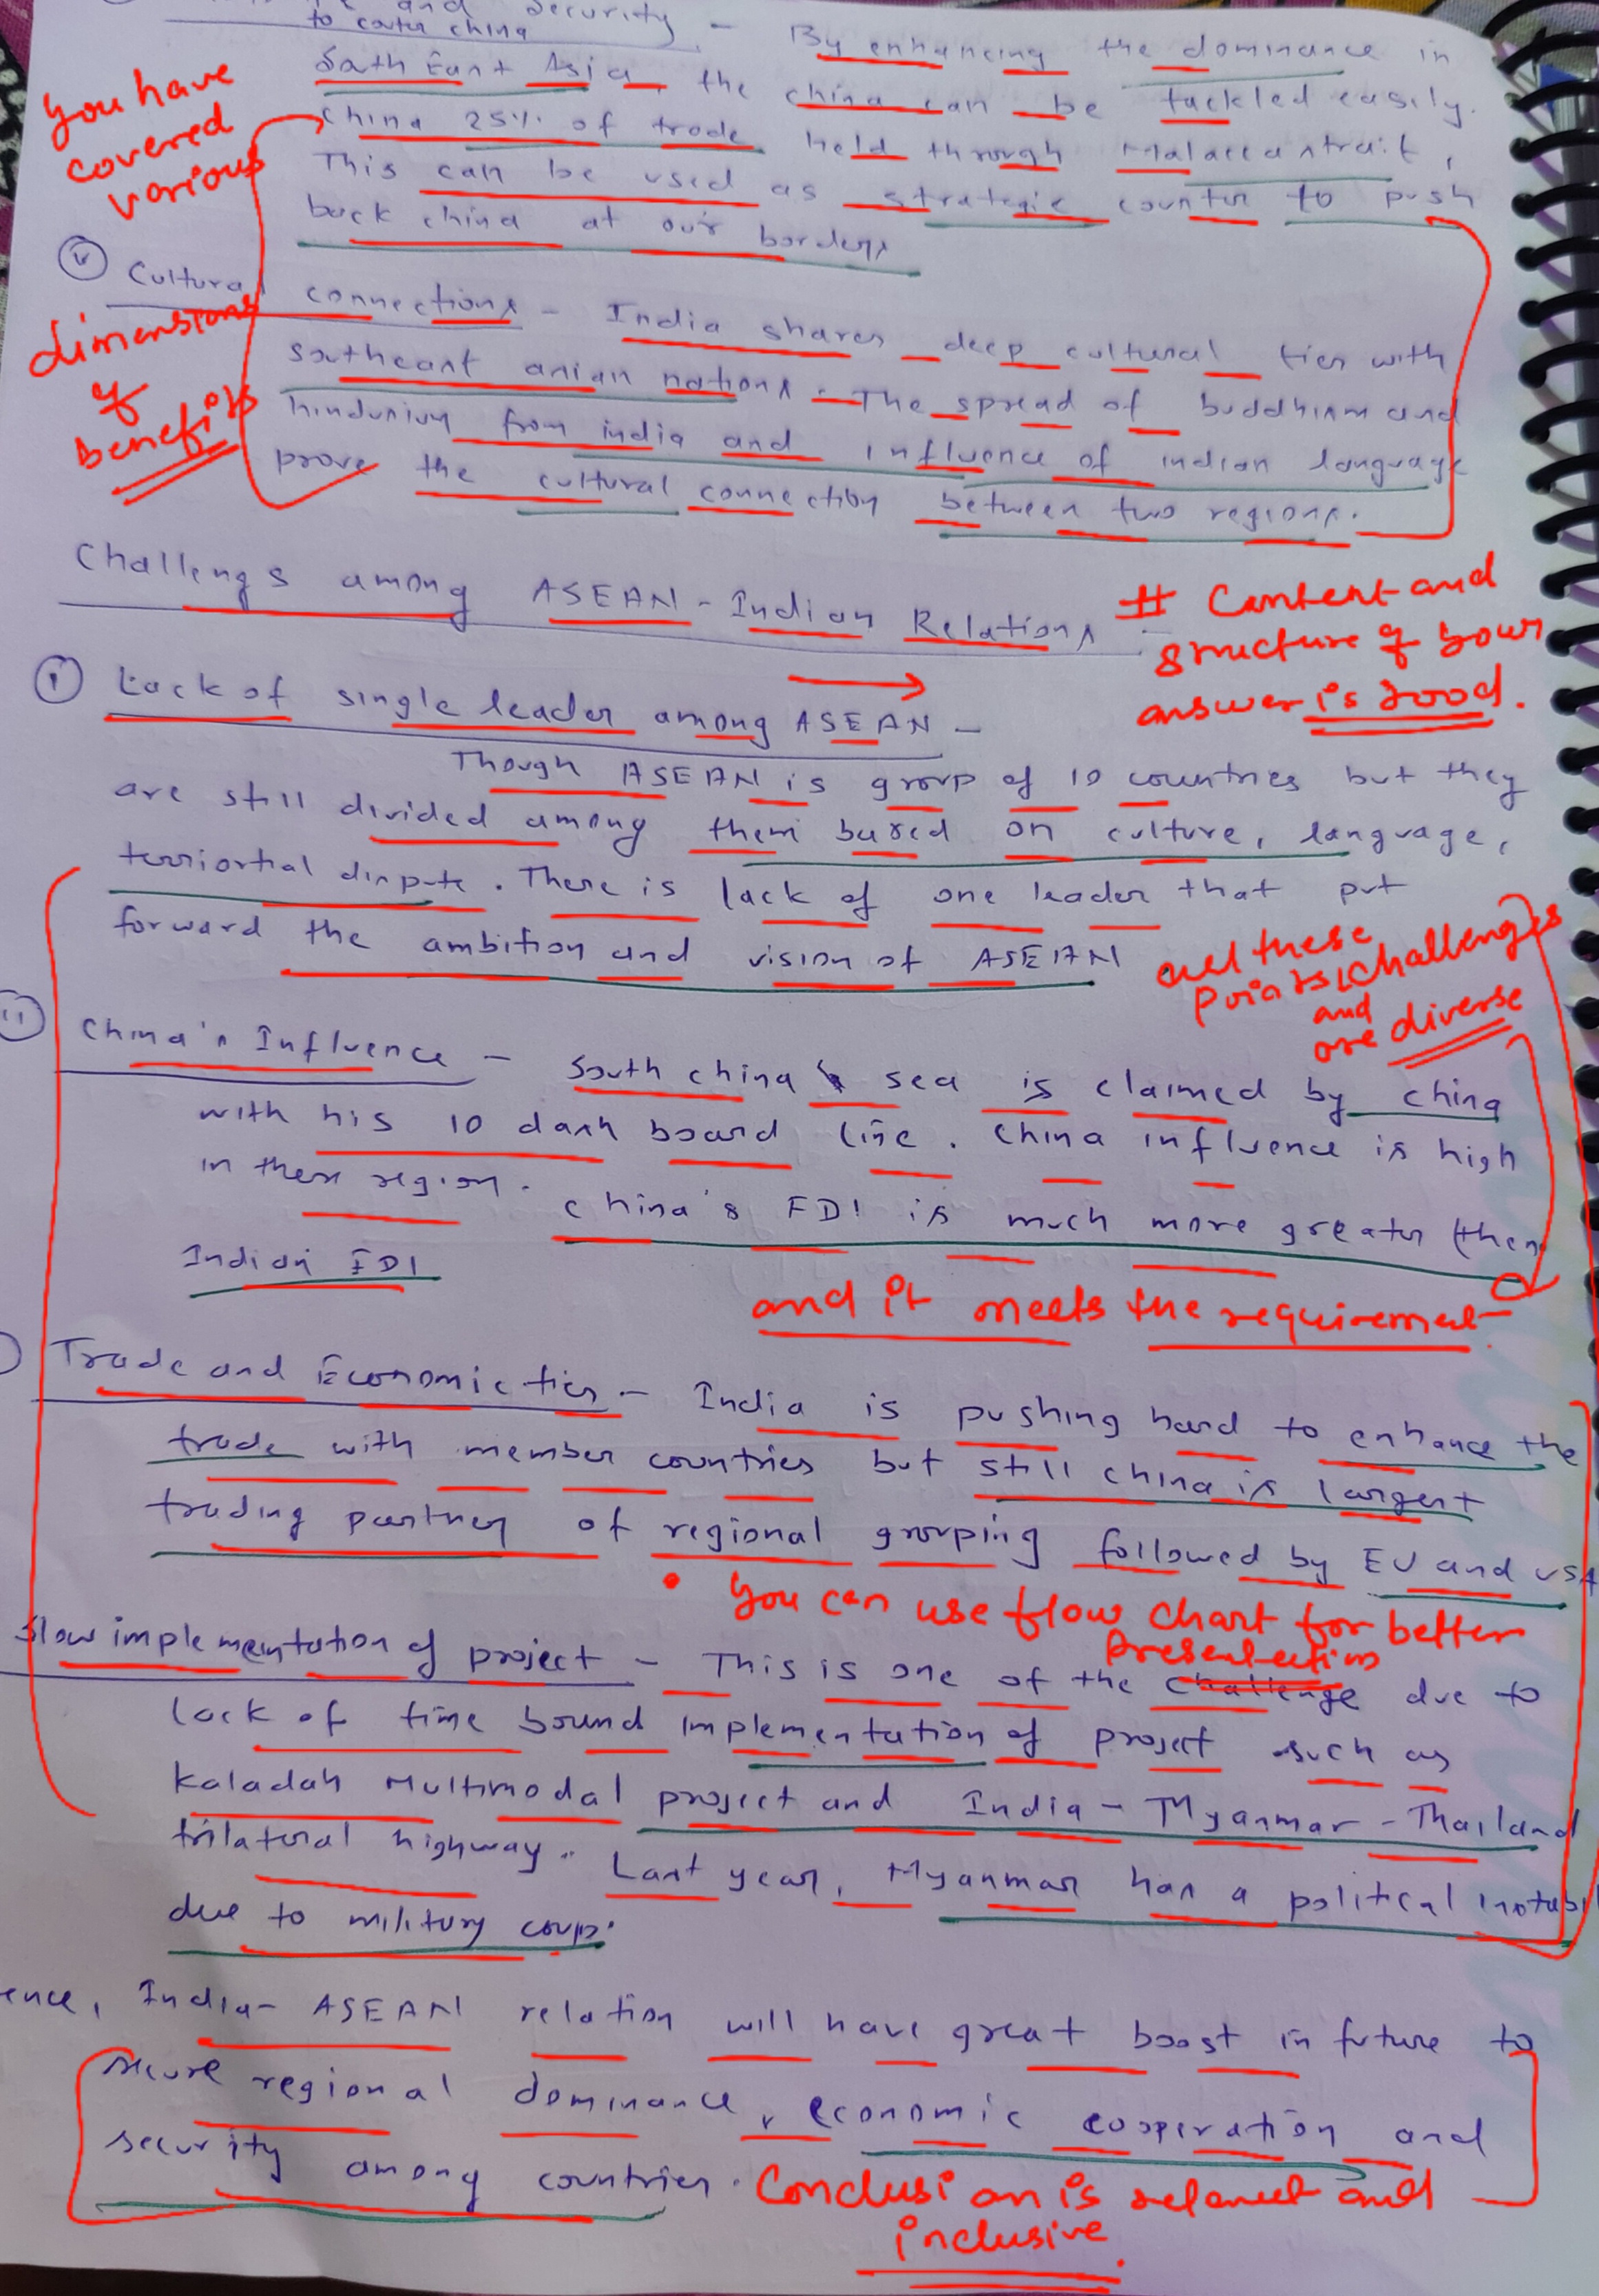 and security -
to couter china
By enhancing the dominance in
South East Asia, the china can be tackled easily.
China 25% of trade held through Malacca strait,
This can be used as strategic counter to push
back china at our borders
you have
covered
various
dimensions
of
benefits
(v) Cultural connections - India shares deep cultural ties with
southeast asian nations. The spread of buddhism and
hinduism from india and influence of indian language
prove the cultural connection between two regions.
Challengs among ASEAN - Indian Relations
# Content and
structure of your
answer is good.
(i) Lack of single leader among ASEAN -
Though ASEAN is group of 10 countries but they
are still divided among them based on culture, language,
terriortial dispute. There is lack of one leader that put
forward the ambition and vision of ASEAN
all these
points, challenges
and
are diverse
(ii) China's Influence - South china sea is claimed by china
with his 10 dash board line. China influence is high
in these region. China's FDI is much more greater then
Indian FDI
and it meets the requirement
Trade and Economic ties - India is pushing hard to enhance the
trade with member countries but still china is largest
trading partner of regional grouping followed by EU and USA
• You can use flow chart for better
presentation
Slow implementation of project - This is one of the challenge due to
lack of time bound implementation of project such as
kaladan Multimodal project and India - Myanmar - Thailand
trilateral highway. Last year, Myanmar has a political
due to military coup.
India - ASEAN relation will have great boost in future to
secure regional dominance, economic cooperation and
security among countries.
Conclusion is relevent and
inclusive.